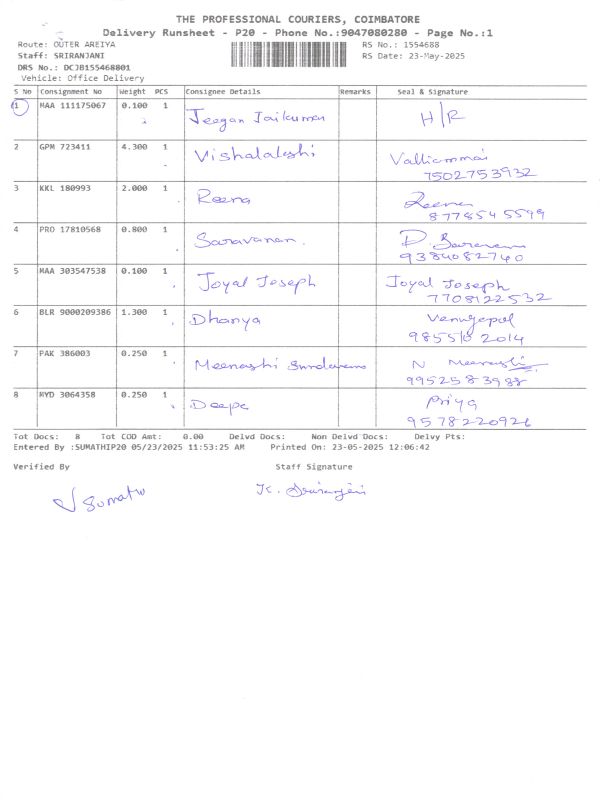 THE PROFESSIONAL COURIERS, COIMBATORE
Delivery Runsheet - P20 - Phone No.:9047080280 - Page No.:1
Route: OUTER AREIYA RS No.: 1554688
Staff: SRIRANJANI RS Date: 23-May-2025
DRS No.: DCJB155468801
Vehicle: Office Delivery
S No Consignment No Weight PCS Consignee Details Remarks Seal & Signature
1 MAA 111175067 0.100 1 Jeegan Jaikumar H/R
2 GPM 723411 4.300 1 Vishalakshi Valliammai
7502753932
3 KKL 180993 2.000 1 Reena Reena
8778545599
4 PRO 17810568 0.800 1 Saravanan. P. Saravanan
9384082740
5 MAA 303547538 0.100 1 Joyal Joseph Joyal Joseph
7708122532
6 BLR 9000209386 1.300 1 Dhanya Venugopal
9855102014
7 PAK 386003 0.250 1 Meenashi Sundaram N Meenashi
9952583988
8 MYD 3064358 0.250 1 Deepa Priya
9578220926
Tot Docs: 8 Tot COD Amt: 0.00 Delvd Docs: Non Delvd Docs: Delvy Pts:
Entered By :SUMATHIP20 05/23/2025 11:53:25 AM Printed On: 23-05-2025 12:06:42
Verified By Staff Signature